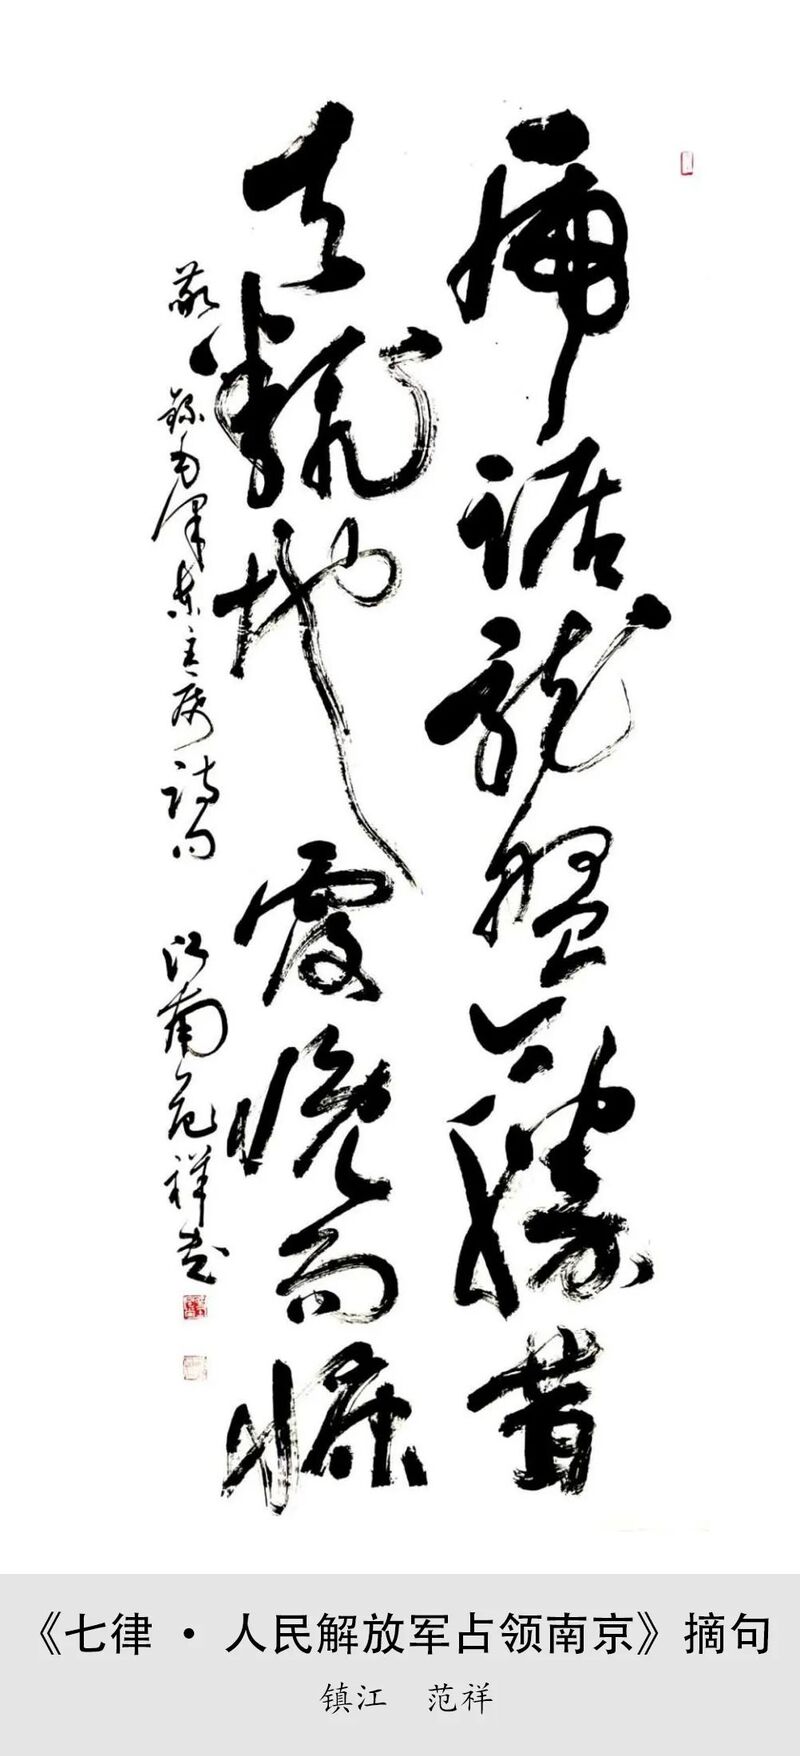 虎踞龍盤今勝昔
天翻地覆慨而慷
敬錄毛澤東主席詩句 江南范祥書
《七律·人民解放军占领南京》摘句
镇江 范祥